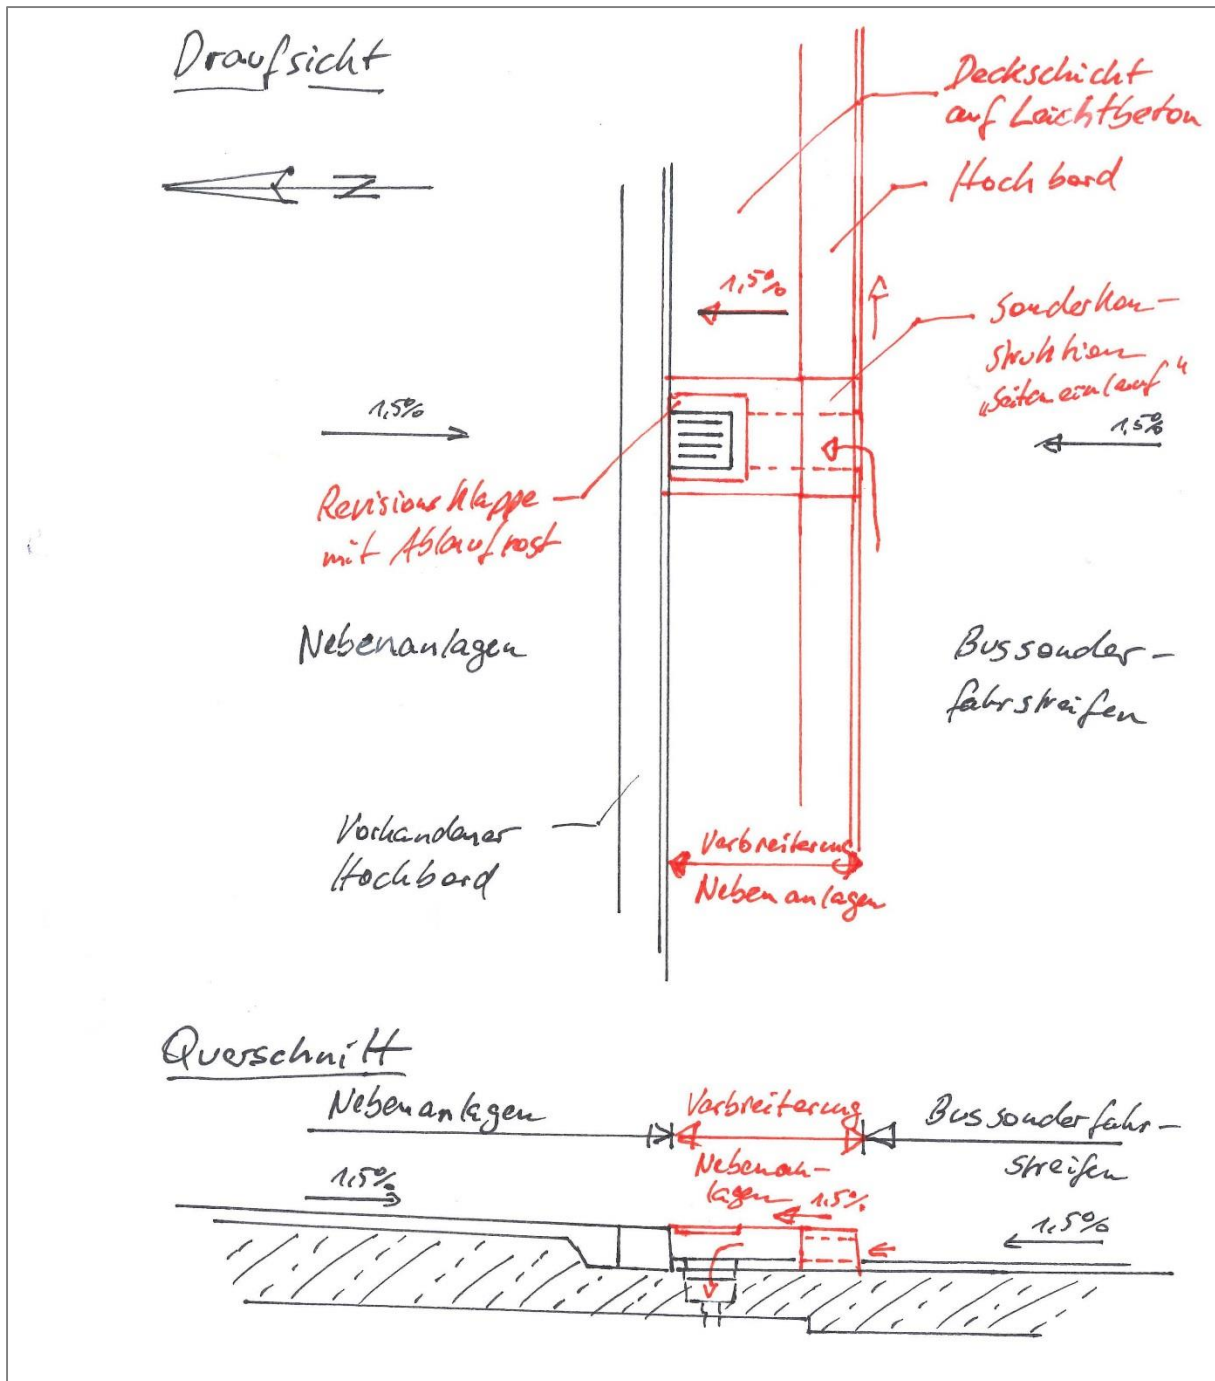 Draufsicht
N
Deckschicht
auf Leichtbeton
Hochbord
1,5%
Sonderkon-
struktion
„Seiteneinlauf“
1,5%
1,5%
Revisionsklappe
mit Ablaufrost
Nebenanlagen
Bussonder-
fahrstreifen
Vorhandener
Hochbord
Verbreiterung
Nebenanlagen
Querschnitt
Nebenanlagen
Verbreiterung
Nebenan-
lagen
Bussonderfahr-
streifen
1,5%
1,5%
1,5%